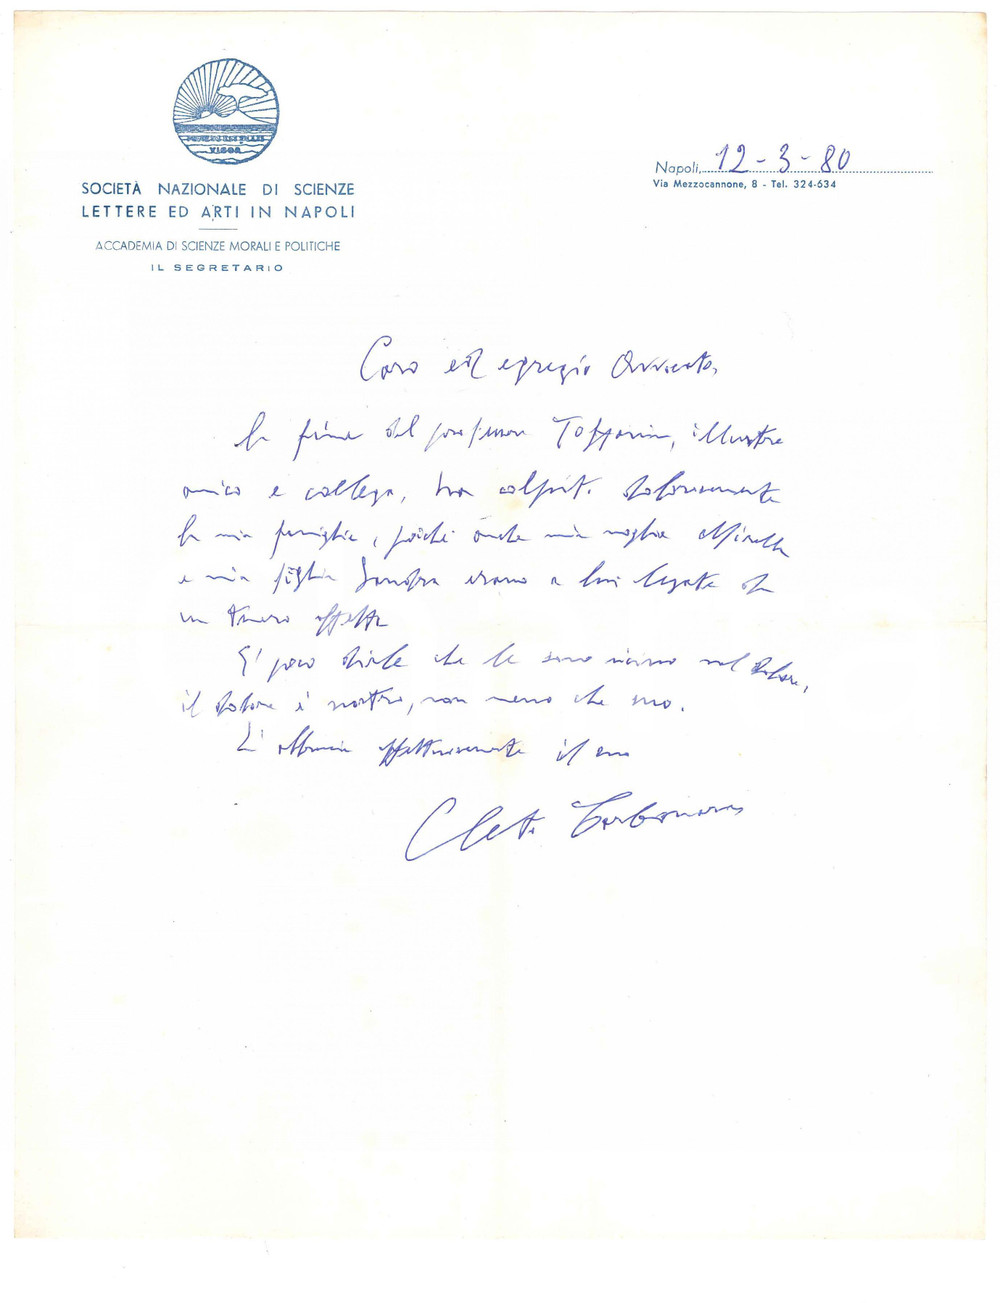 VIGOR
SOCIETÀ NAZIONALE DI SCIENZE
LETTERE ED ARTI IN NAPOLI
ACCADEMIA DI SCIENZE MORALI E POLITICHE
IL SEGRETARIO
Napoli, 12-3-80
Via Mezzocannone, 8 - Tel. 324-634
Caro ed egregio Avvocato,
la fine del professor Toffanin, illustre
amico e collega, ha colpito dolorosamente
la mia famiglia, poiché anche mia moglie Mirella
e mia figlia Sandra erano a lui legate da
un tenero affetto.
E' poco dirle che le sono vicino nel dolore,
il dolore è nostro, non meno che suo.
L'abbraccia affettuosamente il suo
Cleto Carbonara